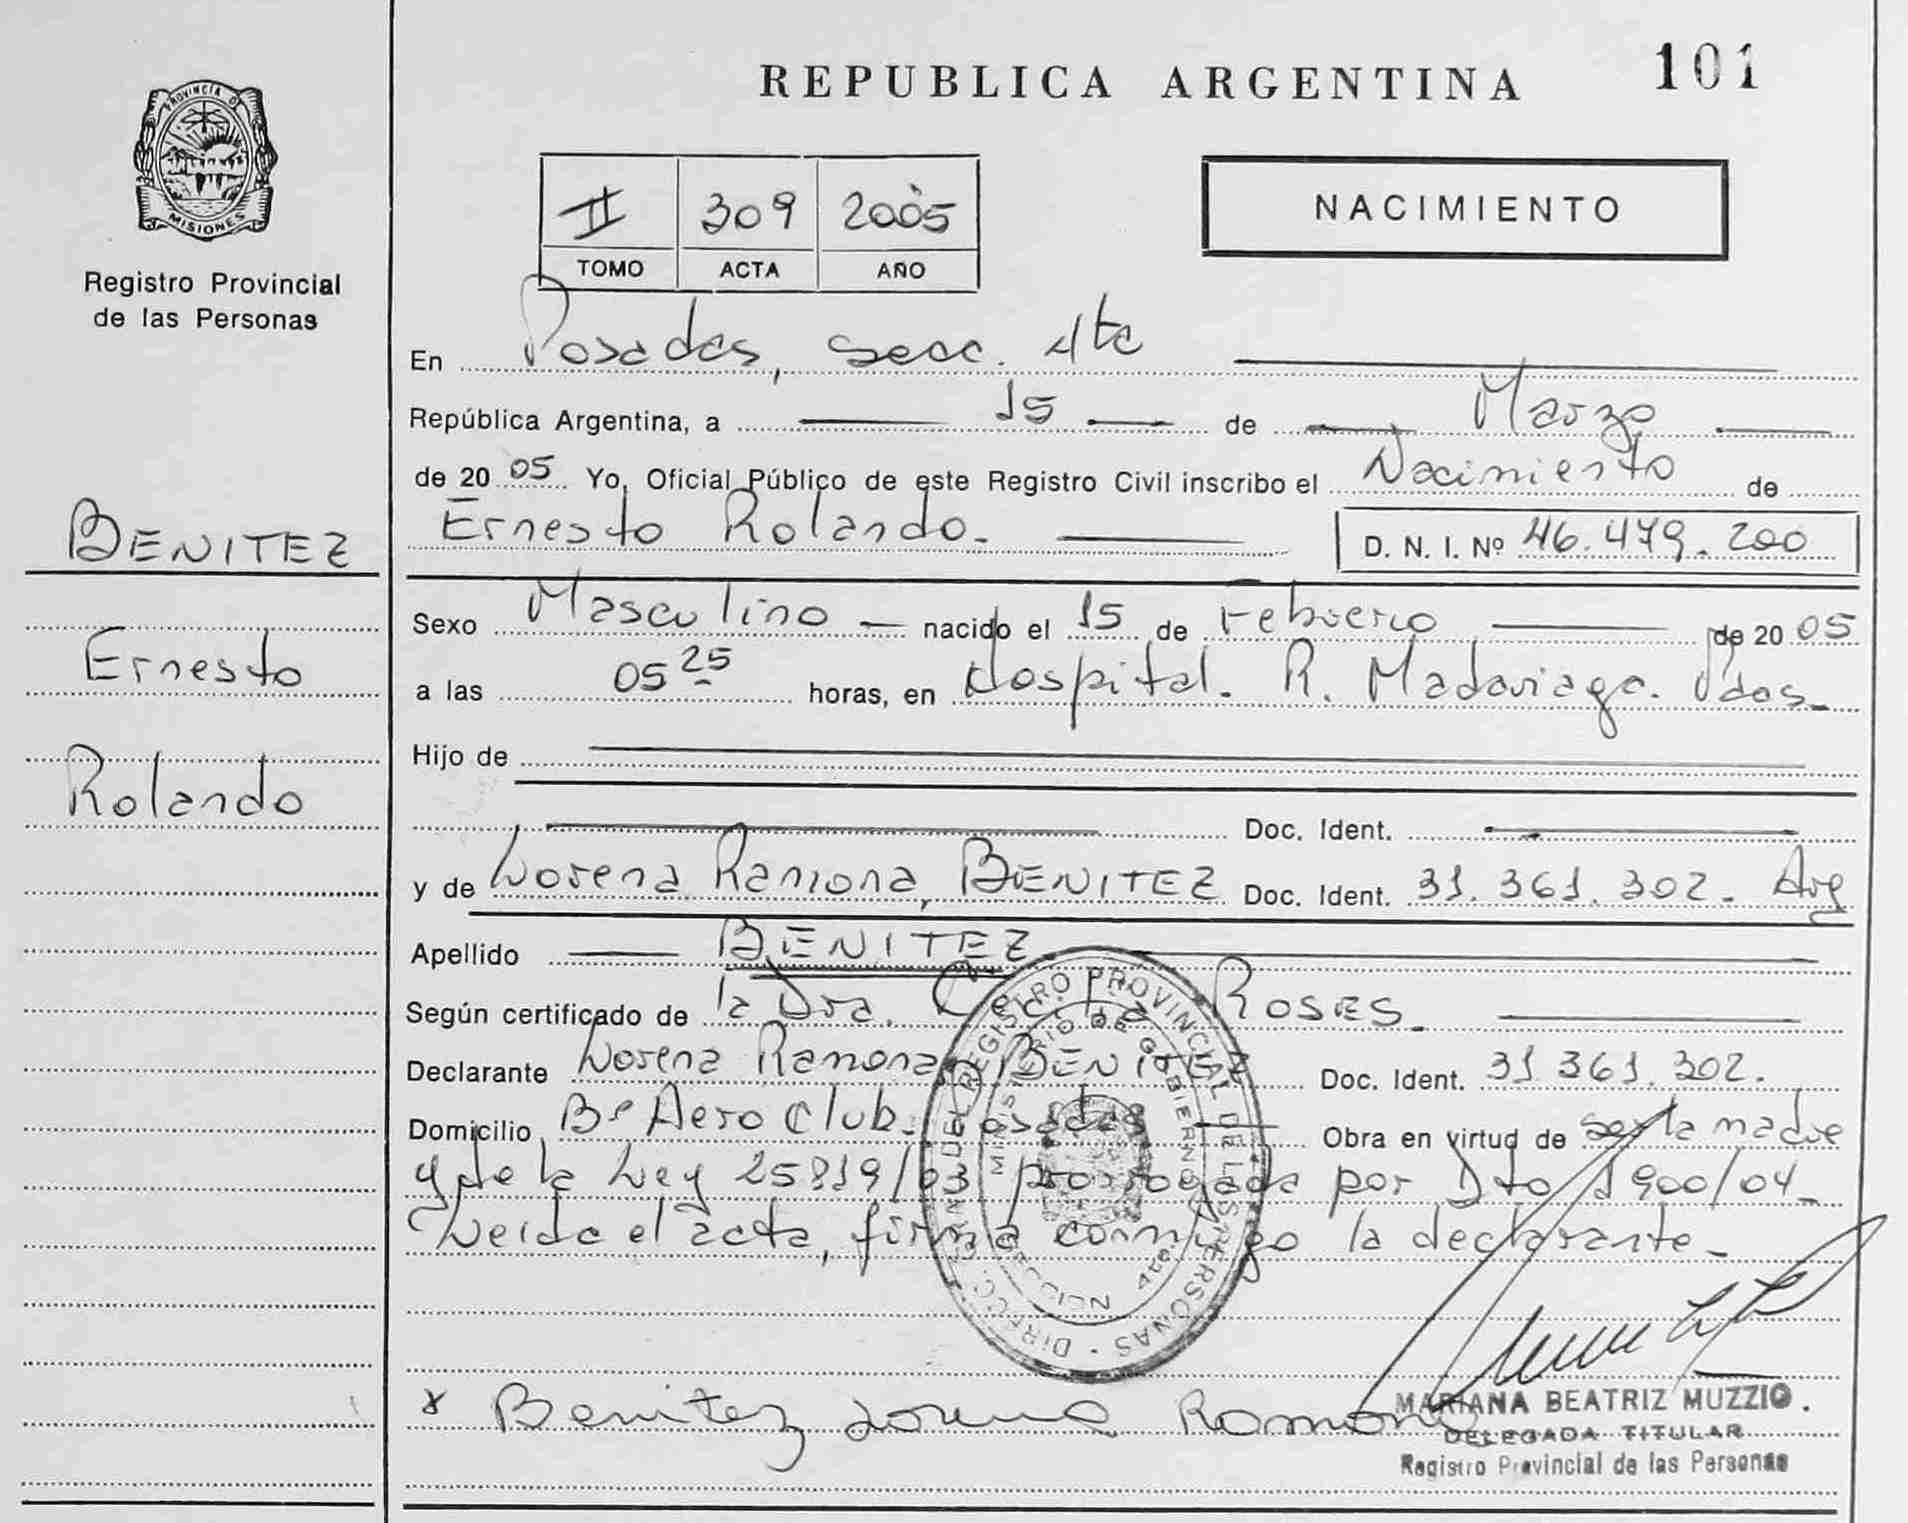 REPUBLICA ARGENTINA
101
PROVINCIA D
MISIONES
Registro Provincial
de las Personas
II 309 2005
TOMO ACTA AÑO
NACIMIENTO
En Posadas, secc. 4ta
República Argentina, a 15 de Marzo
de 2005 Yo, Oficial Público de este Registro Civil inscribo el Nacimiento de
Ernesto Rolando. D. N. I. Nº 46.479.200
BENITEZ
Ernesto
Rolando
Sexo Masculino nacido el 15 de Febrero de 2005
a las 05 25 horas, en Hospital. R. Madariaga. Pdas.
Hijo de
Doc. Ident.
y de Lorena Ramona, BENITEZ Doc. Ident. 31.361.302. Arg
Apellido BENITEZ
Según certificado de la Dra. ROSES.
Declarante Lorena Ramona BENITEZ Doc. Ident. 31 361.302.
Domicilio Bº Aero Club. Posadas Obra en virtud de ser la madre
y de la Ley 25819/03 prorrogada por Dto 1900/04.
Leida el acta, firma conmigo la declarante.
DIRECC. GRAL. DEL REGISTRO PROVINCIAL DE LAS PERSONAS
MINISTERIO DE GOBIERNO
x Benitez Lorena Ramona
MARIANA BEATRIZ MUZZIO.
DELEGADA TITULAR
Registro Provincial de las Personas